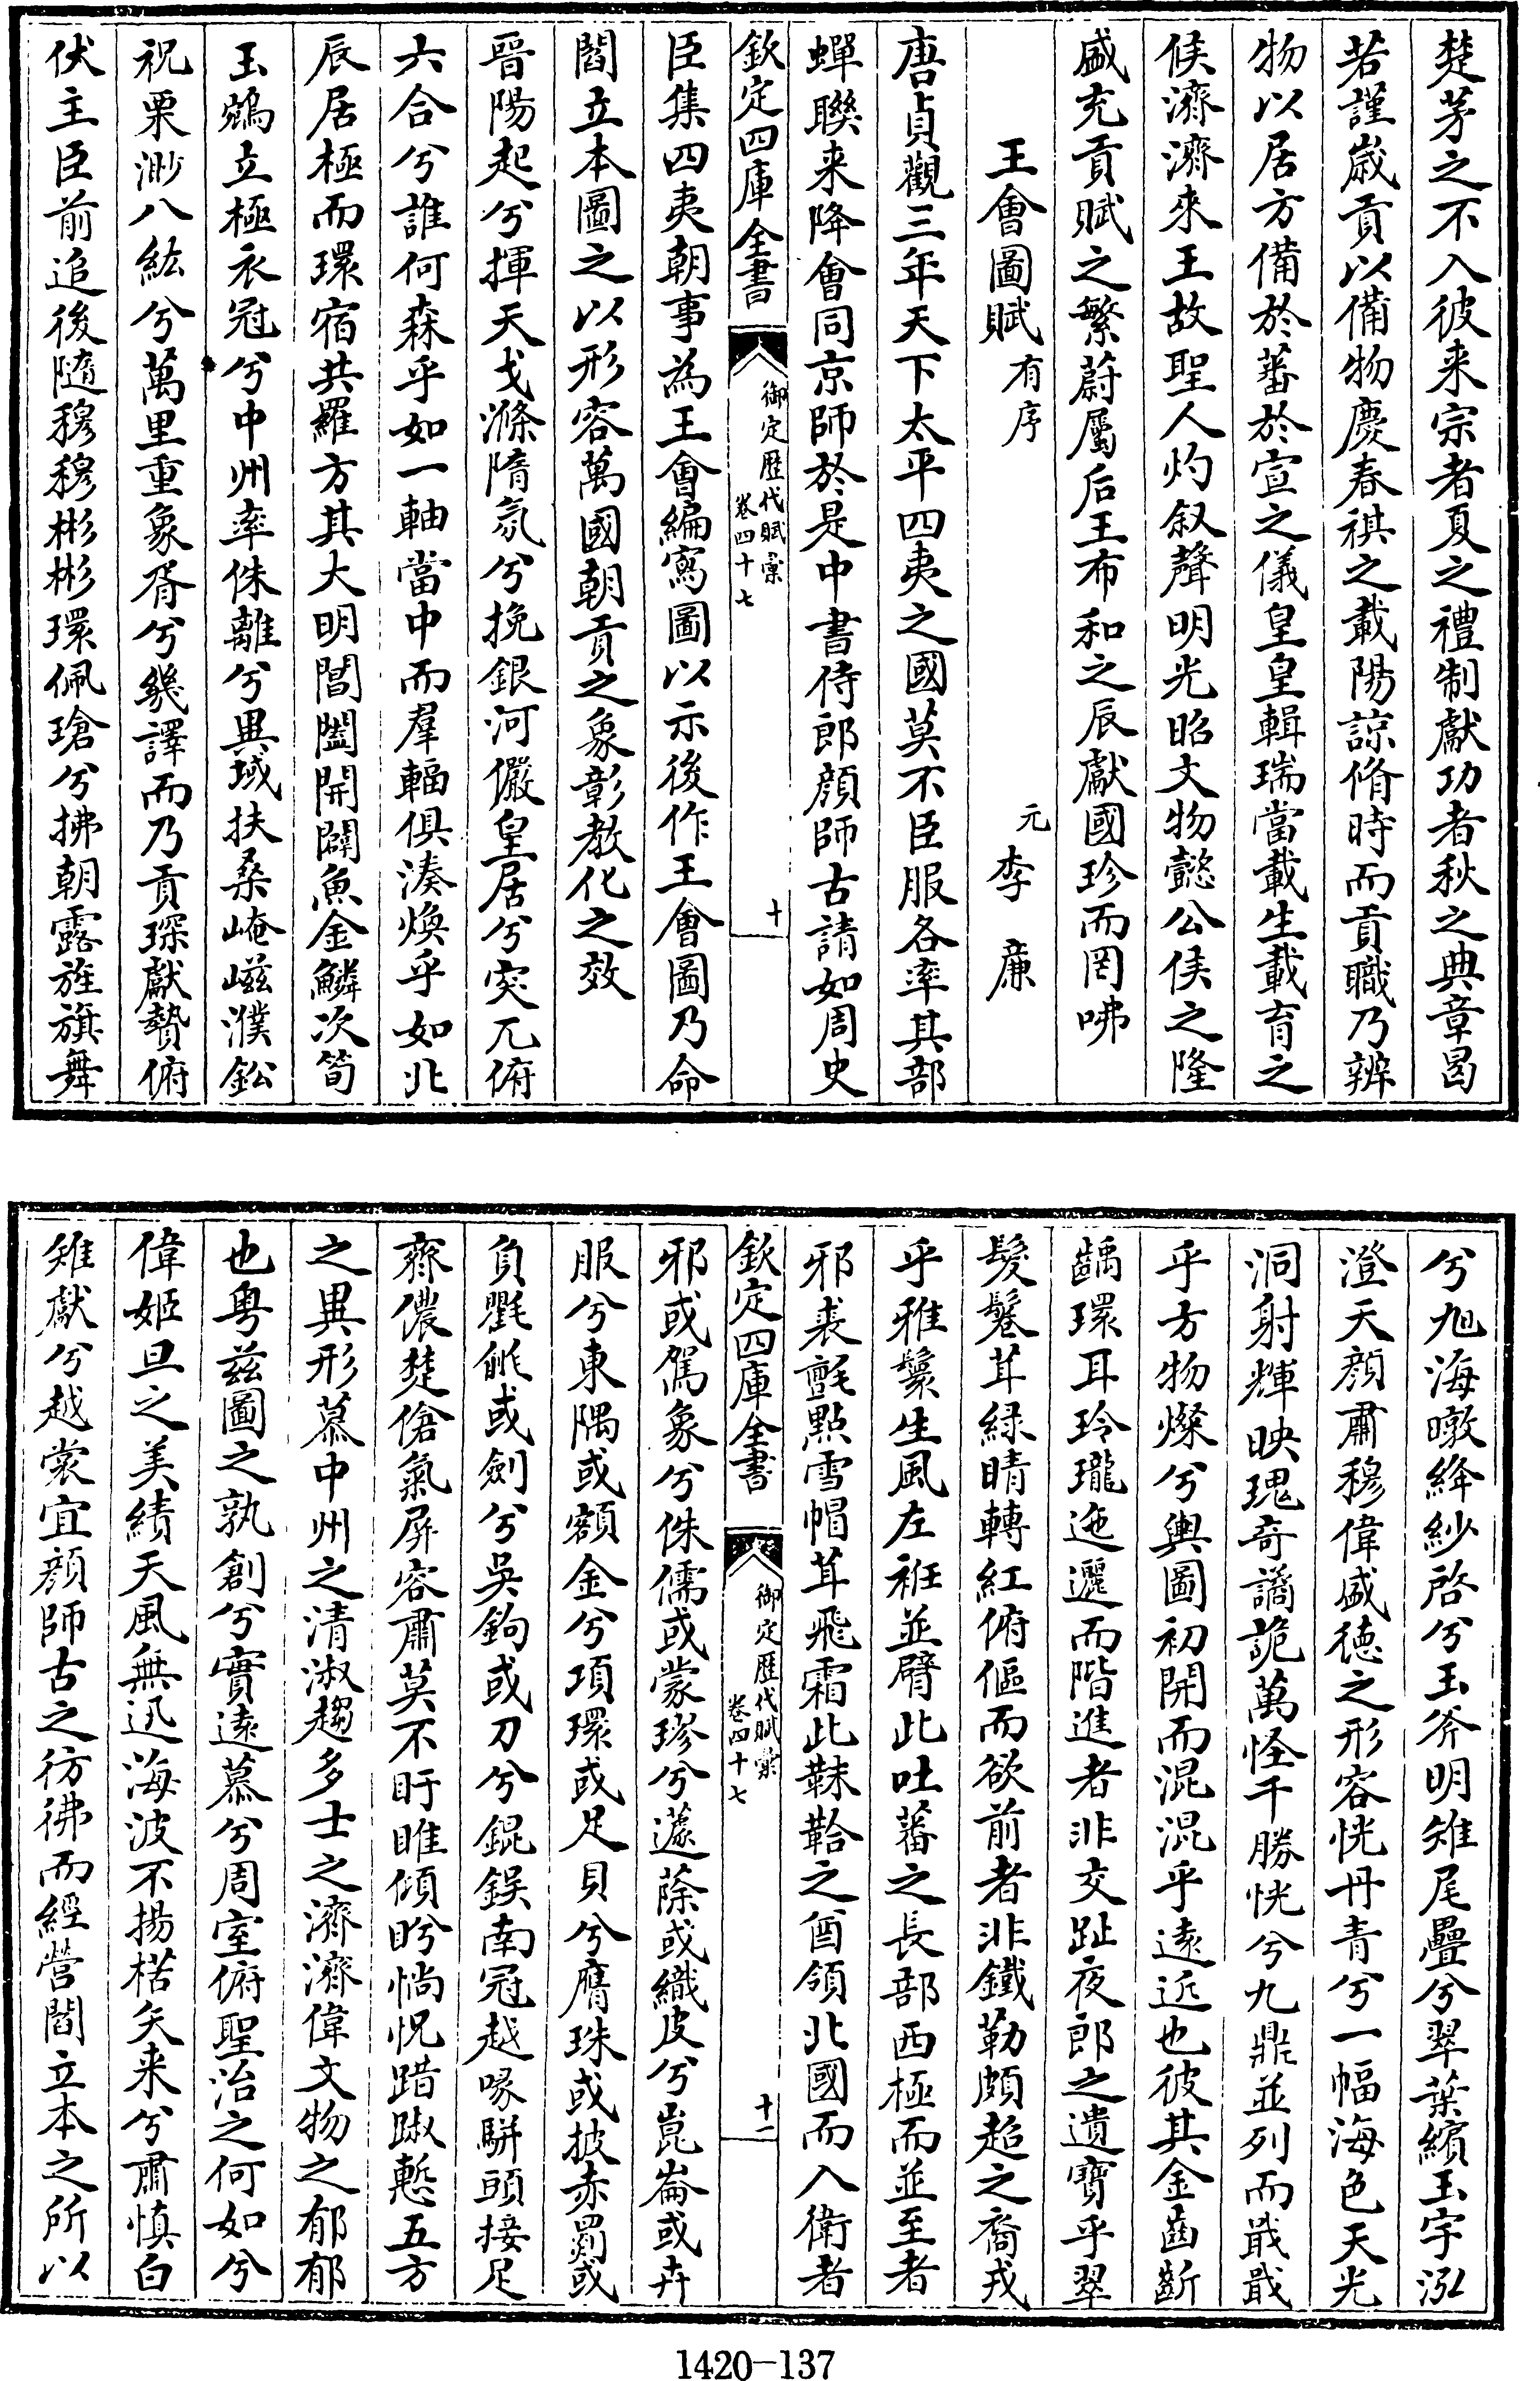 楚茅之不入彼来宗者夏之禮制獻功者秋之典章曷
若謹歲貢以備物慶春祺之載陽諒脩時而貢職乃辨
物以居方備於蕃於宣之儀皇皇輯瑞當載生載育之
侯濟濟來王故聖人灼叙聲明光昭文物懿公侯之隆
盛充貢賦之繁蔚屬后王布和之辰獻國珍而罔咈
王會圖賦有序 元李廉
唐貞觀三年天下太平四夷之國莫不臣服各率其部
蟬聯来降會同京師於是中書侍郎顔師古請如周史
欽定四庫全書 御定歴代賦彙 卷四十七 十
臣集四夷朝事為王會編寫圖以示後作王會圖乃命
閻立本圖之以形容萬國朝貢之象彰教化之效
晉陽起兮揮天戈滌隋氛兮挽銀河儼皇居兮突兀俯
六合兮誰何森乎如一軸當中而羣輻俱湊煥乎如北
辰居極而環宿共羅方其大明閶闔開闢魚金鱗次筍
玉鵷立極衣冠兮中州率侏離兮異域扶桑崦嵫濮鈆
祝栗渺八紘兮萬里重象胥兮幾譯而乃貢琛獻贄俯
伏主臣前追後隨穆穆彬彬環佩瑲兮拂朝露旌旗舞
兮旭海暾絳紗啓兮玉斧明雉尾疊兮翠葉繽玉宇泓
澄天顔肅穆偉盛徳之形容恍丹青兮一幅海色天光
洞射輝映瑰奇譎詭萬怪千勝恍兮九鼎並列而戢戢
乎方物燦兮輿圖初開而混混乎遠近也彼其金齒斷
齲環耳玲瓏迤邐而階進者非交趾夜郎之遺寶乎翠
髮鬈茸緑睛轉紅俯傴而欲前者非鐵勒頗超之裔戎
乎雅鬟生風左袵並臂此吐蕃之長部西極而並至者
邪裘氈點雪帽茸飛霜此韎鞈之酋領北國而入衛者
欽定四庫全書 御定歴代賦彙 卷四十七 十一
邪或駕象兮侏儒或蒙珍兮蘧蒢或織皮兮崑崙或卉
服兮東隅或額金兮項環或足貝兮膺珠或披赤罽或
負氍毹或劍兮吳鉤或刀兮錕鋘南冠越喙駢頭接足
齊儂楚傖氣屏容肅莫不盱睢傾盻惝怳踖踧慙五方
之異形慕中州之清淑趨多士之濟濟偉文物之郁郁
也粤兹圖之孰創兮實遠慕兮周室俯聖治之何如兮
偉姬旦之美績天風無迅海波不揚楛矢来兮肅慎白
雉獻兮越裳宜顔師古之彷彿而經營閻立本之所以
1420-137